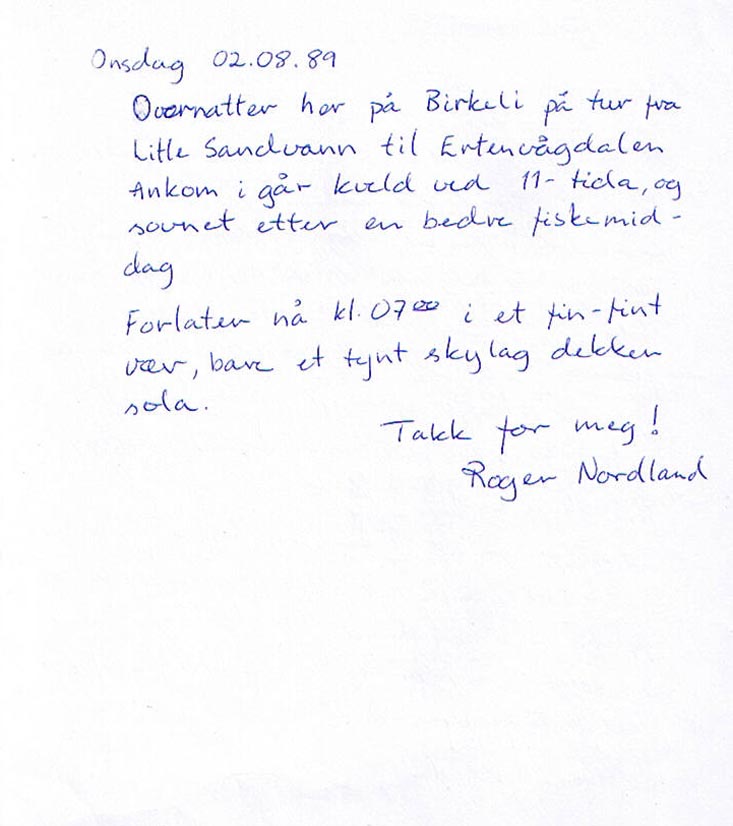 Onsdag 02.08.89
Overnatter her på Birkeli på tur fra
Litle Sandvann til Ertenvågdalen
Ankom i går kveld ved 11-tida, og
sovnet etter en bedre fiskemid-
dag
Forlater nå kl. 07⁰⁰ i et fin-fint
vær, bare et tynt skylag dekker
sola.
Takk for meg!
Roger Nordland